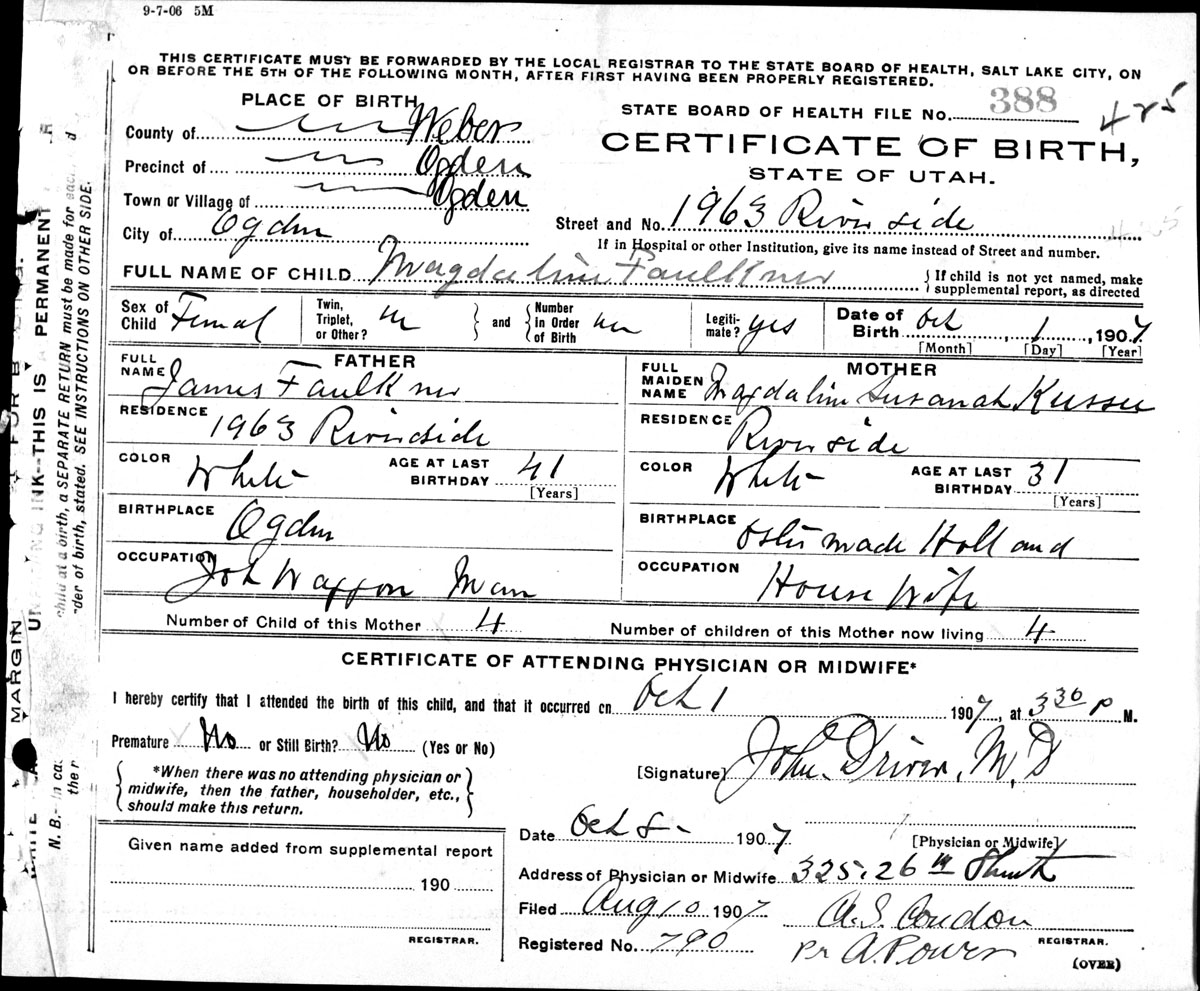 9-7-06 5M
THIS CERTIFICATE MUST BE FORWARDED BY THE LOCAL REGISTRAR TO THE STATE BOARD OF HEALTH, SALT LAKE CITY, ON
OR BEFORE THE 5TH OF THE FOLLOWING MONTH, AFTER FIRST HAVING BEEN PROPERLY REGISTERED.
PLACE OF BIRTH
County of Weber
Precinct of Ogden
Town or Village of Ogden
City of Ogden
STATE BOARD OF HEALTH FILE No. 388
425
CERTIFICATE OF BIRTH,
STATE OF UTAH.
Street and No. 1963 River side
If in Hospital or other Institution, give its name instead of Street and number.
FULL NAME OF CHILD Magdaline Faulkner
{If child is not yet named, make
supplemental report, as directed
Sex of Child Femal
Twin, Triplet, or Other?
and {Number in Order of Birth
Legitimate? yes
Date of Birth Oct 1, 1907
[Month] [Day] [Year]
FATHER
FULL NAME James Faulkner
RESIDENCE 1963 Riverside
COLOR White
AGE AT LAST BIRTHDAY 41
[Years]
BIRTHPLACE Ogden
OCCUPATION Job Waggon Man
MOTHER
FULL MAIDEN NAME Magdaline Susanah
RESIDENCE River side
COLOR White
AGE AT LAST BIRTHDAY 31
[Years]
BIRTHPLACE Holland
OCCUPATION House Wife
Number of Child of this Mother 4
Number of children of this Mother now living 4
CERTIFICATE OF ATTENDING PHYSICIAN OR MIDWIFE*
I hereby certify that I attended the birth of this child, and that it occurred on Oct 1 1907, at 3 30 P M.
Premature No or Still Birth? No (Yes or No)
*When there was no attending physician or
midwife, then the father, householder, etc.,
should make this return.
[Signature] John Driver, M.D
Date Oct 8- 1907
[Physician or Midwife]
Address of Physician or Midwife 325. 26th Street
Filed Aug 10 1907
A. S. Condon
REGISTRAR.
Registered No. 790
Pr A Powers
(OVER)
Given name added from supplemental report
190
REGISTRAR.
MARGIN
INK--THIS IS A PERMANENT
child at a birth, a SEPARATE RETURN must be made for each
der of birth, stated. SEE INSTRUCTIONS ON OTHER SIDE.
N. B.- In ca